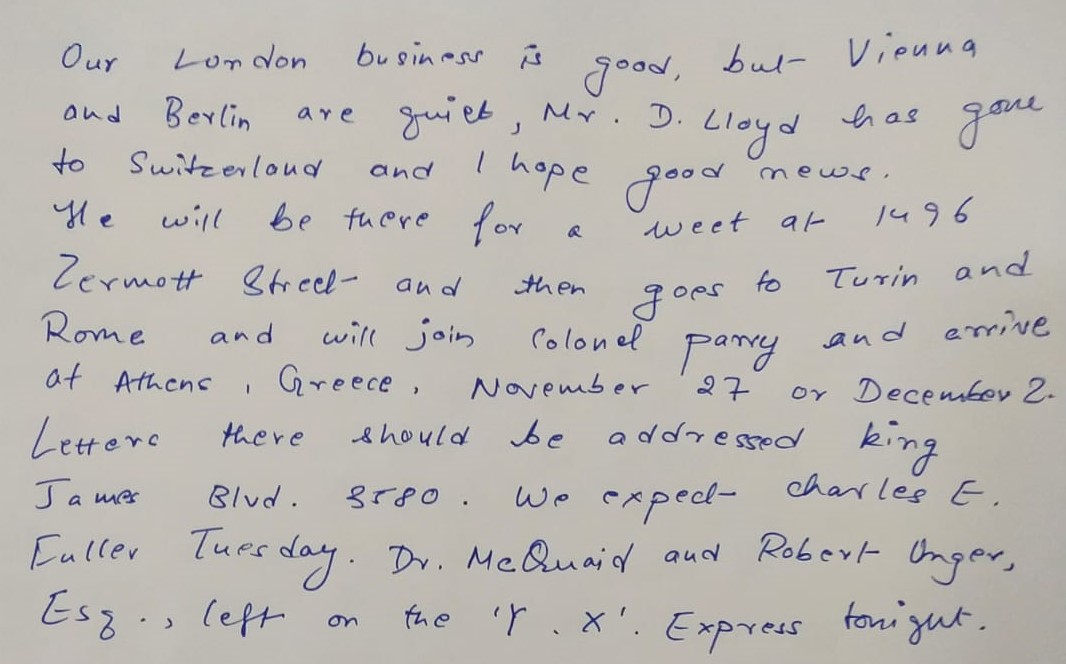 Our London business is good, but Vienna
and Berlin are quiet, Mr. D. Lloyd has gone
to Switzerland and I hope good news.
He will be there for a weet at 1496
Zermott Street and then goes to Turin and
Rome and will join Colonel parry and arrive
at Athens, Greece, November 27 or December 2.
Letters there should be addressed king
James Blvd. 3580. We expect charles E.
Fuller Tuesday. Dr. McQuaid and Robert Unger,
Esq., left on the 'Y. X'. Express tonight.